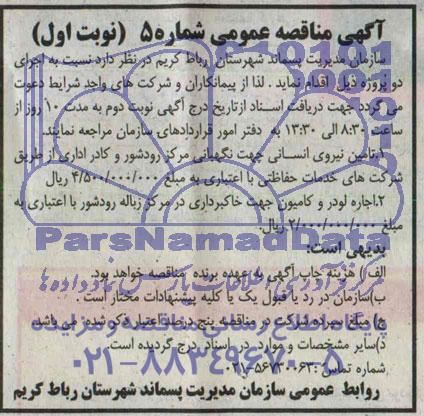 آگهی مناقصه عمومی شماره۵ (نوبت اول)
سازمان مدیریت پسماند شهرستان رباط کریم در نظر دارد نسبت به اجرای
دو پروژه ذیل اقدام نماید . لذا از پیمانکاران و شرکت های واجد شرایط دعوت
می گردد جهت دریافت اسناد ازتاریخ درج آگهی نوبت دوم به مدت ۱۰ روز از
ساعت ۸:۳۰ الی ۱۳:۳۰ به دفتر امور قراردادهای سازمان مراجعه نمایند.
۱.تامین نیروی انسانی جهت نگهبانی مرکز رودشور و کادر اداری از طریق
شرکت های خدمات حفاظتی با اعتباری به مبلغ ۴/۵۰۰/۰۰۰/۰۰۰ ریال
۲.اجاره لودر و کامیون جهت خاکبرداری در مرکز زباله رودشور با اعتباری به
مبلغ ۲/۰۰۰/۰۰۰/۰۰۰ ریال.
بدیهی است:
الف) هزینه چاپ آگهی به عهده برنده مناقصه خواهد بود.
ب)سازمان در رد یا قبول یک یا کلیه پیشنهادات مختار است .
ج) مبلغ سپرده شرکت در مناقصه پنج درصد اعتبار ذکر شده می باشد
د)سایر مشخصات و موارد در اسناد درج گردیده است.
شماره تماس : ۵۶۷۳۰۰۶۳-۰۲۱
روابط عمومی سازمان مدیریت پسماند شهرستان رباط کریم
ParsNamadData
۰۲۱-۸۸۳۴۹۶۷۰-۵